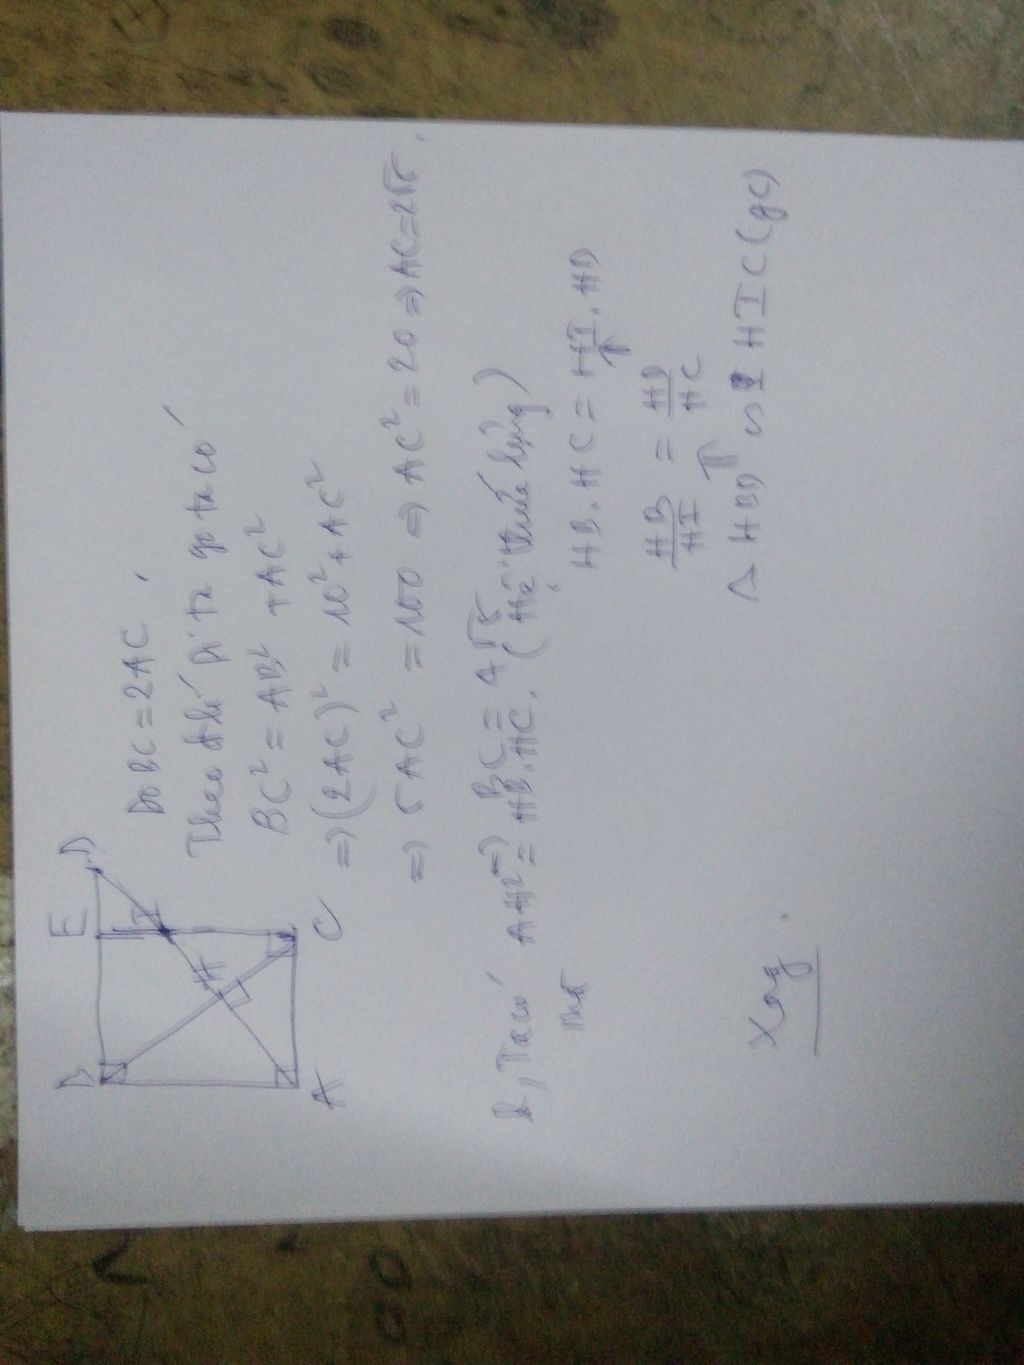 B
E
D
I
H
A
C
Do BC = 2AC.
Theo đlí Pi ta go ta có
BC² = AB² + AC²
=> (2AC)² = 10² + AC²
=> 5AC² = 100 => AC² = 20 => AC = 2√5.
=> BC = 4√5
b, Ta có AH² = HB.HC. (Hệ thức lượng)
HB.HC = HI.HD
HB/HI = HD/HC
Δ HBD ∽ Δ HIC (gg)
Xong.